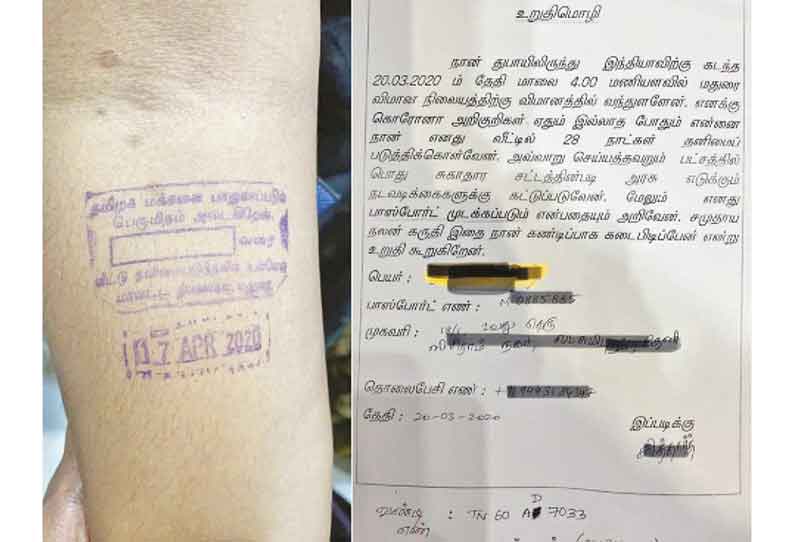 தமிழக மக்களை பாதுகாப்பதில்
பெருமிதம் அடைகிறேன்.
வரை
வீட்டு
மாவட்ட நிர்வாகம், மதுரை
17 APR 2020
உறுதிமொழி
நான் துபாயிலிருந்து இந்தியாவிற்கு கடந்த
20.03.2020 ம் தேதி மாலை 4.00 மணியளவில் மதுரை
விமான நிலையத்திற்கு விமானத்தில் வந்துளளேன். எனக்கு
கொரோனா அறிகுறிகள் ஏதும் இல்லாத போதும் என்னை
நான் எனது வீட்டில் 28 நாட்கள் தனிமைப்
படுத்திக்கொள்வேன். அவ்வாறு செய்யத்தவறும் பட்சத்தில்
பொது சுகாதார சட்டத்தின்படி அரசு எடுக்கும்
நடவடிக்கைகளுக்கு கட்டுப்படுவேன். மேலும் எனது
பாஸ்போர்ட் முடக்கப்படும் என்பதையும் அறிவேன். சமுதாய
நலன் கருதி இதை நான் கண்டிப்பாக கடைபிடிப்பேன் என்று
உறுதி கூறுகிறேன்.
பெயர் :
பாஸ்போர்ட் எண் :
முகவரி : தெரு
நகர்,
தொலைபேசி எண் : +
தேதி : 20-03-2020
இப்படிக்கு
வண்டி
எண் : TN 60 A D 7033